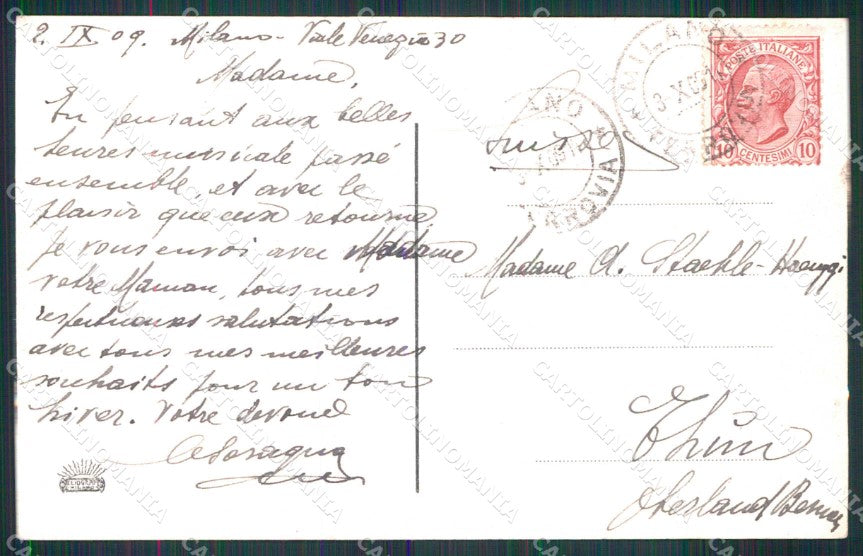 2. IX 09. Milano - Viale Venezia 30
Madame,
En pensant aux belles
heures musicale passé
ensemble, et avec le
plaisir que ceux retourne
je vous envoi avec Madame
votre Maman, tous mes
respectueuses salutations
avec tous mes meilleures
souhaits pour un bon
hiver. Votre devoué
MILANO
FERROVIA
POSTE ITALIANE
10 CENTESIMI 10
Madame A. Staehle-Haenggi
Thun
Oberland Bernois
CARTOLINOMANIA